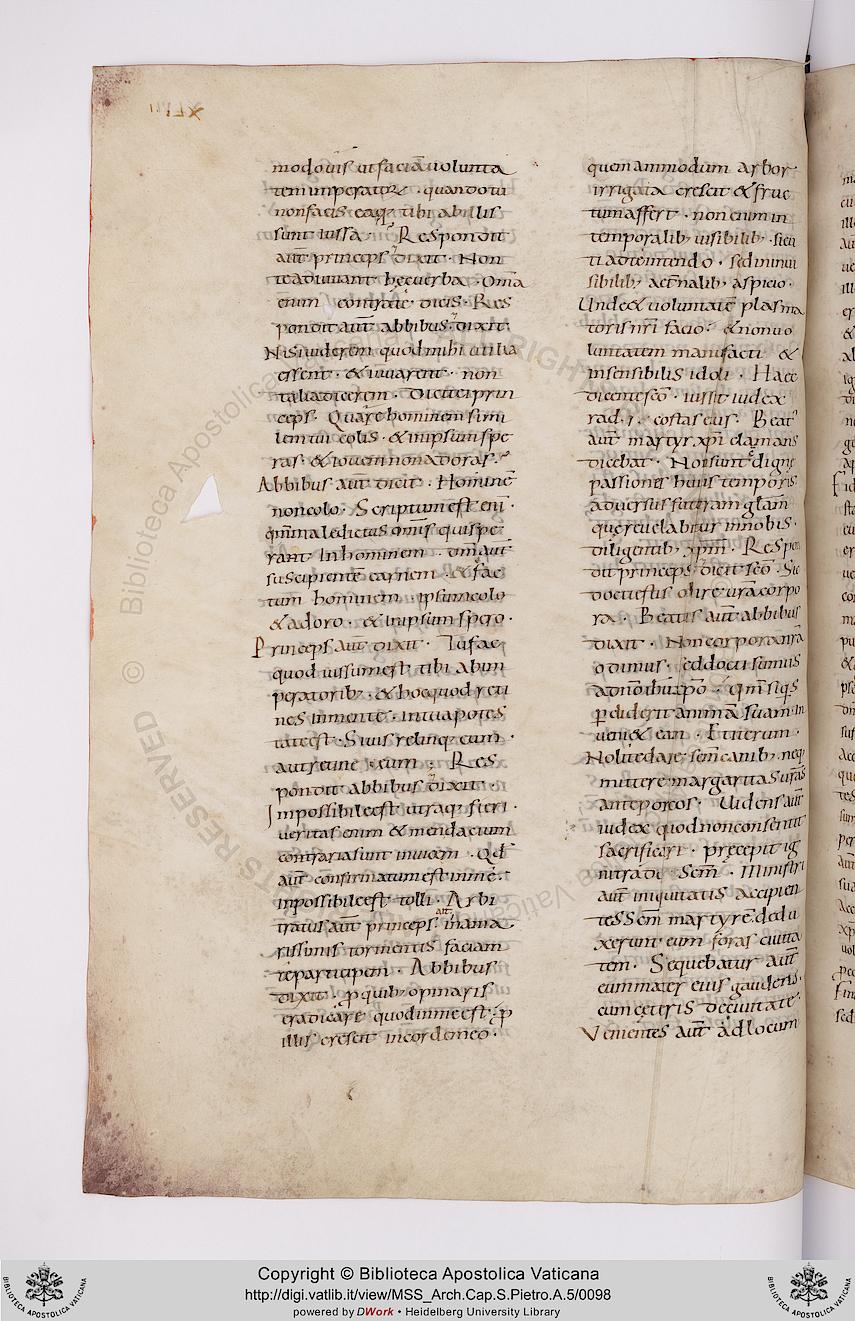 modo uis ut faciā uolunta
tem imperatorꝫ · quando tu
non facis eaq; tibi ab illis
sunt iussa · Respondit
aut̄ princeps dixit · Non
te adiuuant hęc uerba · Om̄a
enim contrarie dicis · Res
pondit aut̄ abbibus · dixit
Nisi uiderem quod mihi utilia
essent · & iuuarent · non
talia dicerem · Dicit ei prin
ceps · Quare hominem simi
lem tui colis · & in ipsum spe
ras · & iouem non adoras ·
Abbibus aut̄ dicit · Hominē
non colo · Scriptum est eni ·
qm̄ maledictus om̄is qui spe
rant in hominem · dm̄ aut̄
suscipientē carnem · & fac
tum hominem · ipsum colo
& adoro · & in ipsum spero ·
Princeps aut̄ dixit · Tu fac
quod iussum est tibi ab im
peratorib; · & hoc quod reti
nes in mente · in tua potes
tate est · Si uis relinq; eum ·
aut retine eum · Res
pondit abbibus dixit ·
Impossibile est utraq; fieri ·
ueritas enim & mendacium
contraria sunt inuicem · Qd̄
aut̄ confirmatum est in me ·
inpossibile est tolli · Arbi
tratus aut̄ princeps · in ama
rissimis tormentis faciam
te participem · Abbibus
dixit · ꝑ quib; opinaris
eradicare quod in me est · ꝑ
illis crescit in corde meo ·
quemammodum arbor
irrigata crescit & fruc
tum affert · non enim in
temporalib; uisibilib; · sicu
ti ad te intendo · sed in inui
sibilib; aet̄nalib; aspicio ·
Unde & uoluntatē plasma
toris nr̄i facio · & non uo
luntatem manufacti &
insensibilis idoli · Haec
dicente sc̄o · iussit iudex
rad · i · costas eius · Beat
aut̄ martyr xp̄i clamans
dicebat · Non sunt dignę
passiones huius temporis
aduersus futuram glām
que reuelabitur in nobis ·
diligentib; xp̄m · Respon
dit princeps dicit sc̄o · Sic
docet iesus odire ur̄a corpo
ra · Beatus aut̄ abbibus
dixit · Non corpora nr̄a
odimus · ed docti sumus
qm̄ siq̄s
ꝑdiderit animā suam · in
ueni& eam · Et iterum ·
Nolite dare sc̄m canib; neq;
mittere margaritas ur̄as
ante porcos · Uidens aut̄
iudex quod non consentit
sacrificari · pręcepit ig
ni tradi sc̄m · Ministri
aut̄ iniquitatis accipien
tes sc̄m martyrē · dedu
xerunt eum foras ciuita
tem · Sequebatur aut̄
eum mater eius gaudens ·
cum ceteris de ciuitate ·
Venientes aut̄ ad locum
Copyright © Biblioteca Apostolica Vaticana
http://digi.vatlib.it/view/MSS_Arch.Cap.S.Pietro.A.5/0098
powered by DWork • Heidelberg University Library